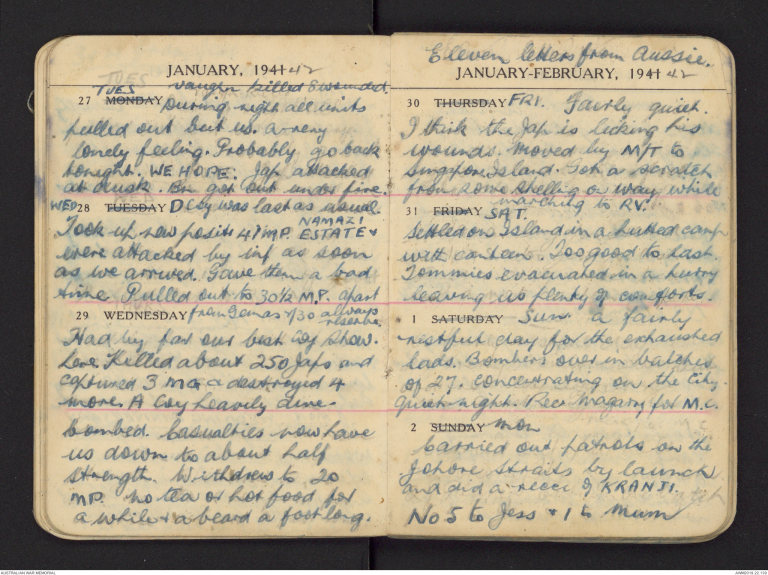 JANUARY, 1941 42
TUES Vaughn killed & wounded.
27 MONDAY During night all units
pulled out but us. A very
lonely feeling. Probably go back
tonight. WE HOPE. Jap attacked
at dusk. Bn got out under fire.
WED 28 TUESDAY D Coy was last as usual.
Took up new posits 41 MP. NAMAZI ESTATE &
were attacked by inf as soon
as we arrived. Gave them a bad
time Pulled out to 30½ M.P. apart
29 WEDNESDAY from Gemas 7/30 always reserve.
Had by far our best Coy show.
Killed about 250 Japs and
captured 3 MG & destroyed 4
more. A Coy heavily dive-
bombed. Casualties now have
us down to about half
strength. Withdrew to 20
MP. No tea or hot food for
a while & a beard a foot long.
Eleven letters from Aussie.
JANUARY-FEBRUARY, 1941 42
30 THURSDAY FRI. Fairly quiet.
I think the Jap is licking his
wounds. Moved by M/T to
Singapore Island. Got a scratch
from some shelling on way while
marching to RV.
31 FRIDAY SAT.
Settled on Island in a hutted camp
with canteen. Too good to last.
Tommies evacuated in a hurry
leaving us plenty of comforts.
1 SATURDAY Sun. A fairly
restful day for the exhausted
lads. Bombers over in batches
of 27. Concentrating on the City.
Quiet night. Rec Magarry for M.C.
2 SUNDAY Mon
Carried out patrols on the
Johore Straits by launch
and did a recce of KRANJI.
No 5 to Jess & 1 to Mum
AUSTRALIAN WAR MEMORIAL